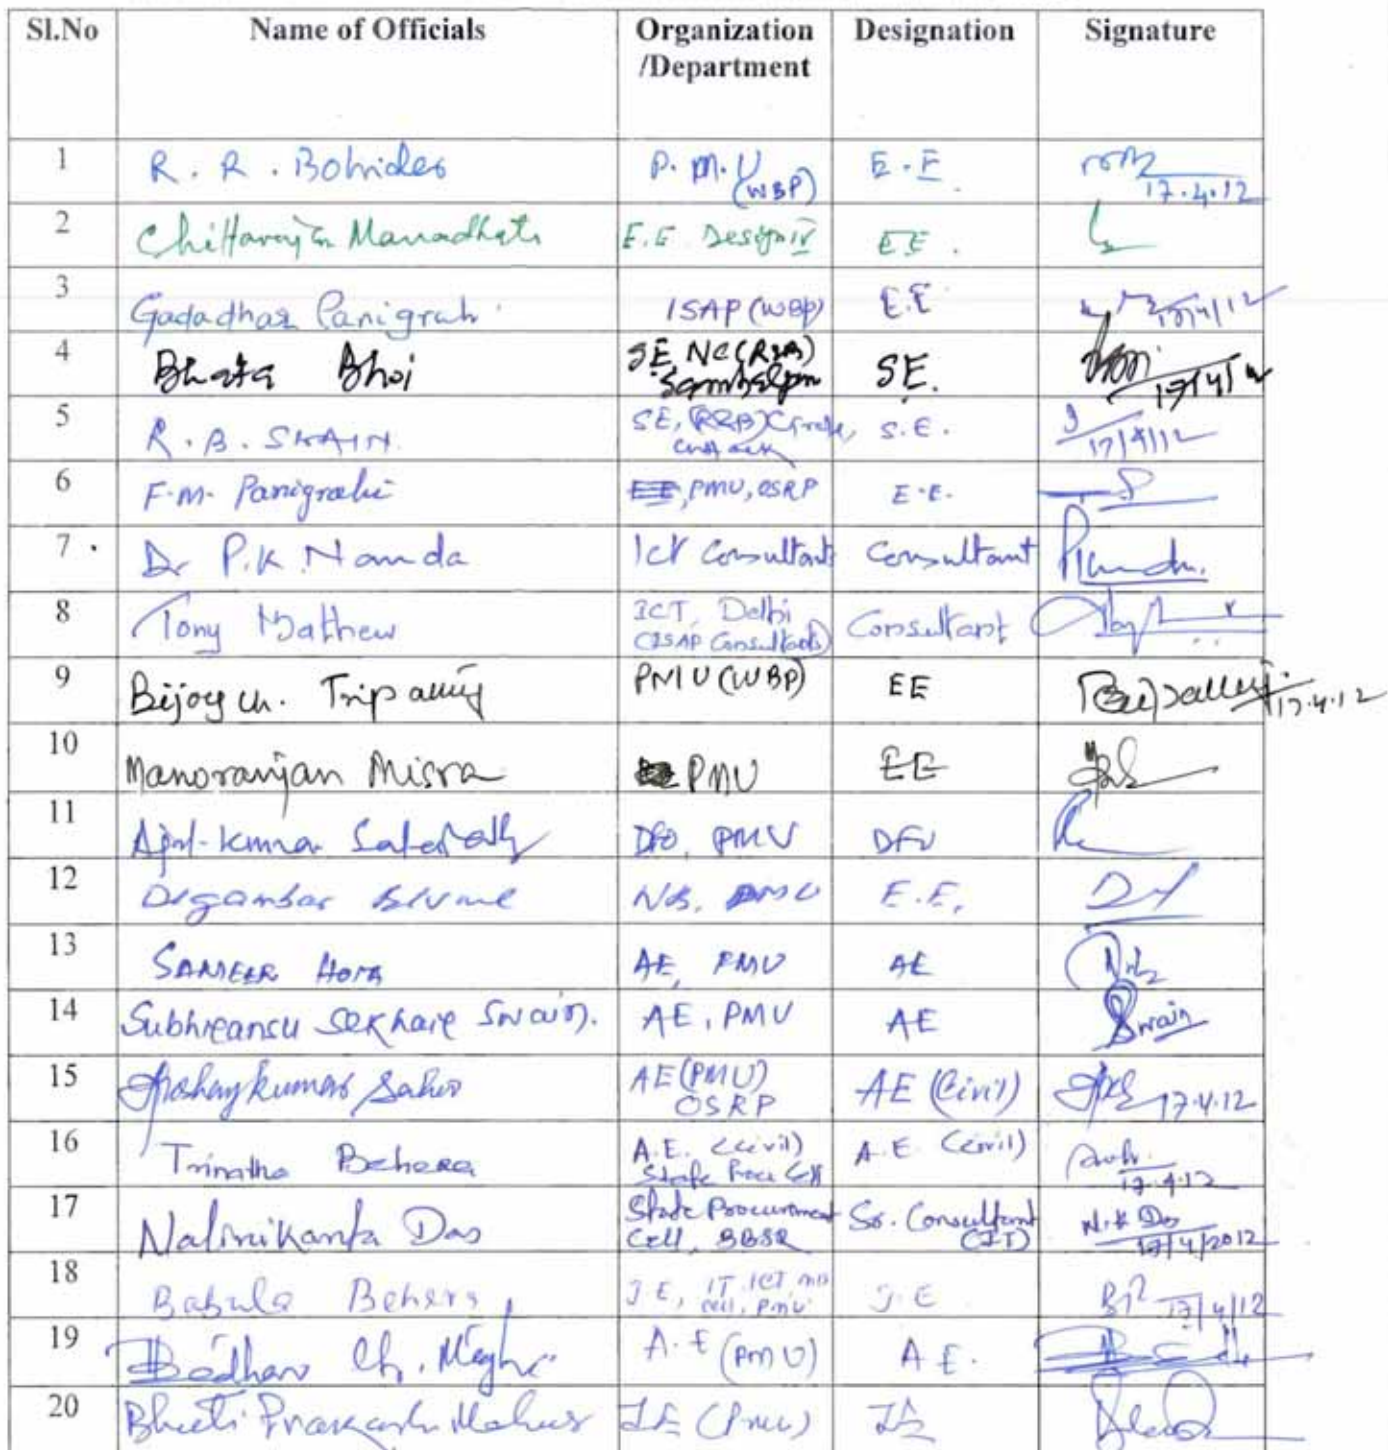 Sl.No Name of Officials Organization /Department Designation Signature
1 R. R. Bohidar P. M. U (WBP) E.E 17.4.12
2 Chittaranjan Mandhata E.E Design IV EE.
3 Gadadhar Panigrahi ISAP (WBP) E.E 17/4/12
4 Bhoi SE NC (R&B) Sambalpur SE. 17/4/12
5 R. B. SWAIN. SE, (R&B) Circle, Cuttack S.E. 17/4/12
6 F.M. Panigrahi EE, PMU, OSRP E.E.
7 Dr P.K. Nanda ICT Consultants Consultant
8 Tony Mathew ICT, Delhi (ISAP Consultants) Consultant
9 Bijoy Ch. Tripathy PMU (WBP) EE 17.4.12
10 Manoranjan Misra PMU EE
11 Kumar Satapathy DFO, PMU DFO
12 Digambar PMU E.E.
13 SAMEER HOTA AE, PMU AE
14 Subhransu Sekhar Swain. AE, PMU AE Swain
15 Akshay Kumar Sahoo AE (PMU) OSRP AE (Civil) 17.4.12
16 Trinatha Behera A.E. (Civil) State Proc Cell A.E. (Civil) 17.4.12
17 Nalinikanta Das State Procurement Cell, BBSR Sr. Consultant (IT) N.K Das 17/4/2012
18 Babula Behera J.E, IT, ICT, cell, PMU J.E 17/4/12
19 Ch. A.E (PMU) A.E.
20 Prakash JE (PMU) JE